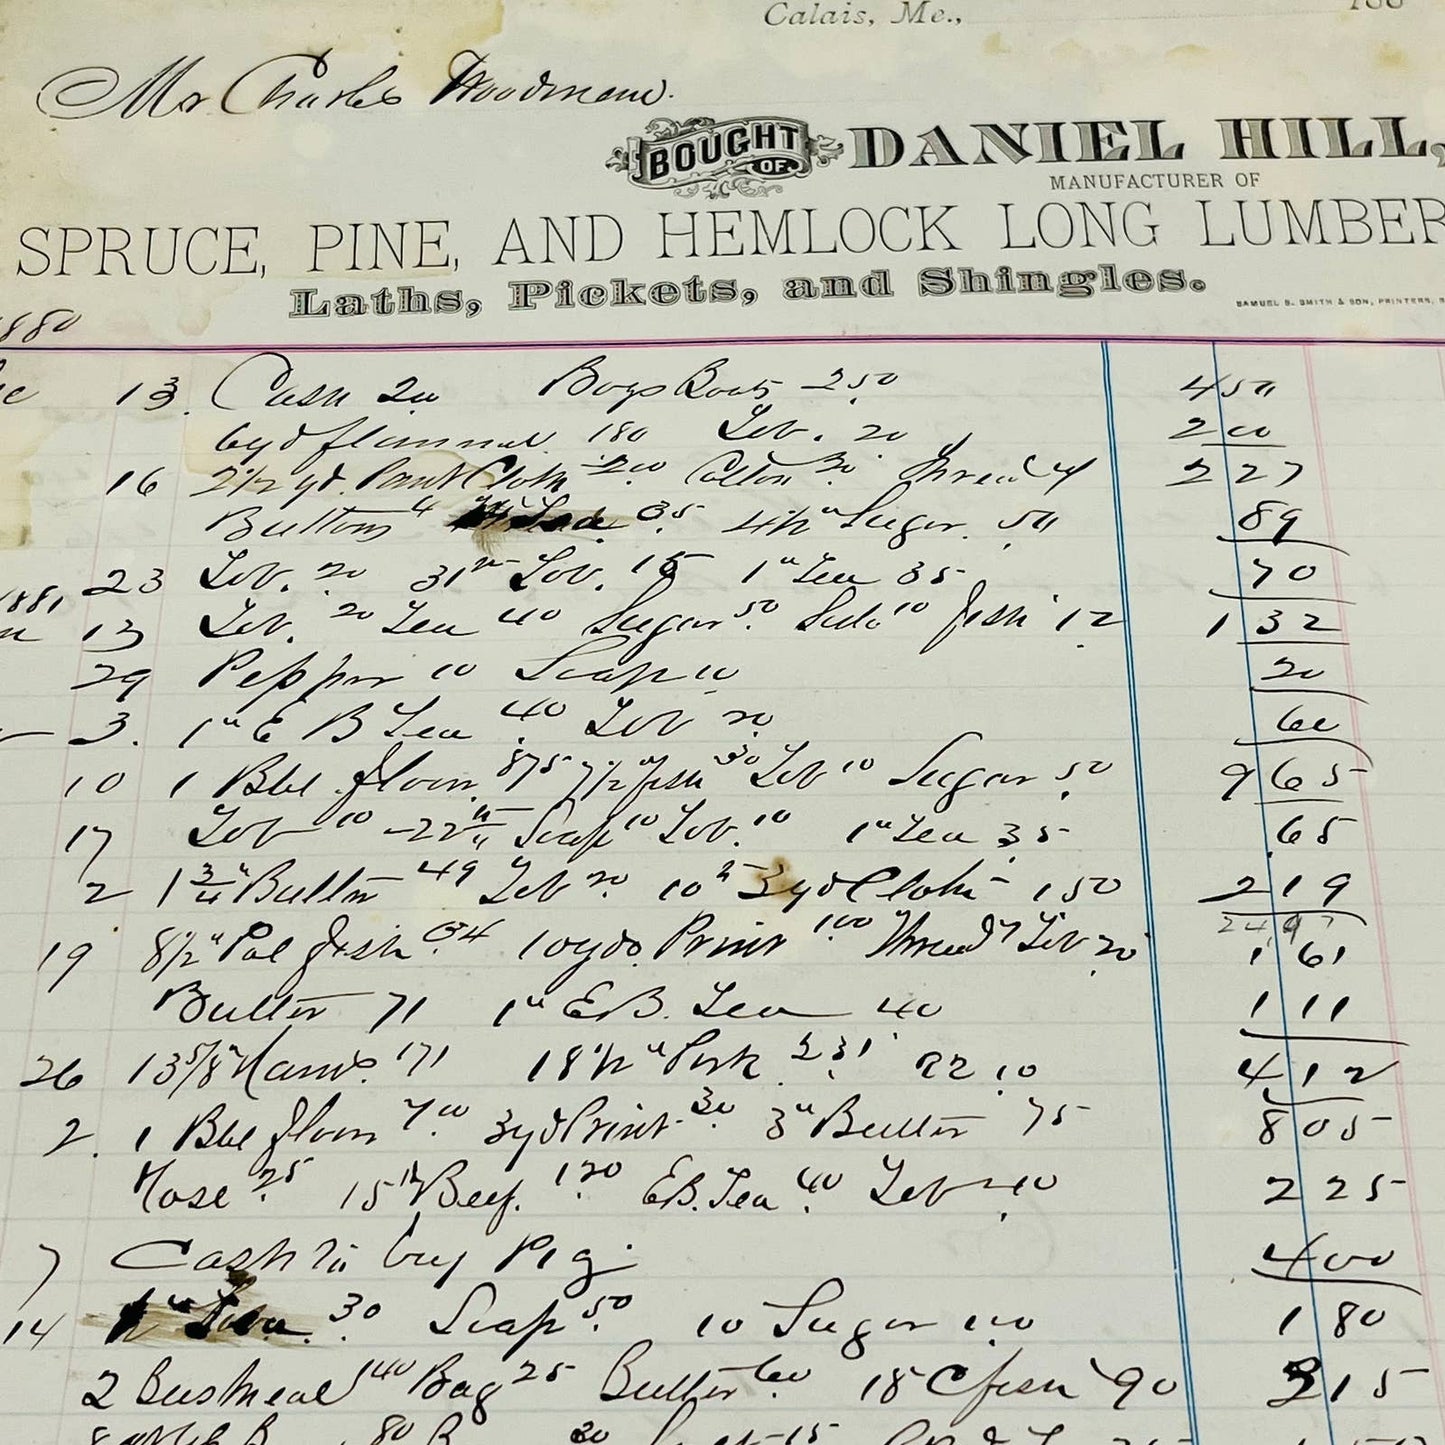 Calais, Me., 188
Mr Charles Woodman.
BOUGHT OF DANIEL HILL,
MANUFACTURER OF
SPRUCE, PINE, AND HEMLOCK LONG LUMBER
Laths, Pickets, and Shingles.
SAMUEL S. SMITH & SON, PRINTERS,
1880
13. Cash 200 Boys Boots 250 450
6 yds flannel 180 Tob. 20 200
16 2 1/2 yd. Pant Cloth 200 Cotton 20 Thread 7 227
Buttons 4 35 4 1/2 " Sugar 50 89
23 Tob. 20 Tob. 15 1 " Tea 35 70
1881
13 Tob. 20 Tea 40 Sugar 50 10 fish 12 132
29 Pepper 10 Soap 10 20
3. 1 " E B Tea 40 Tob 20 60
10 1 Bbl flour 875 7 1/2 " fish 30 Tob 10 Sugar 50 965
17 Tob 10 Soap 10 Tob. 10 1 " Tea 35 65
2 1 3/4 " Butter 49 Tob 20 3 yds Cloth 150 219
2497
19 8 1/2 " Pol fish 34 10 yds Print 100 Thread 7 Tob 20 161
Butter 71 1 " E B. Tea 40 111
26 13 5/8 " 171 18 1/2 " Pork 231 10 412
2. 1 Bbl flour 700 3 yd Print 30 3 " Butter 75 805
Hose 25 15 " Beef. 120 E B. Tea 40 Tob 40 225
7 Cash to buy Pig 400
14 30 Soap 50 10 Sugar 100 180
2 Bus meal 140 Bag 25 Butter 60 18 C fish 90 315
80 20 15